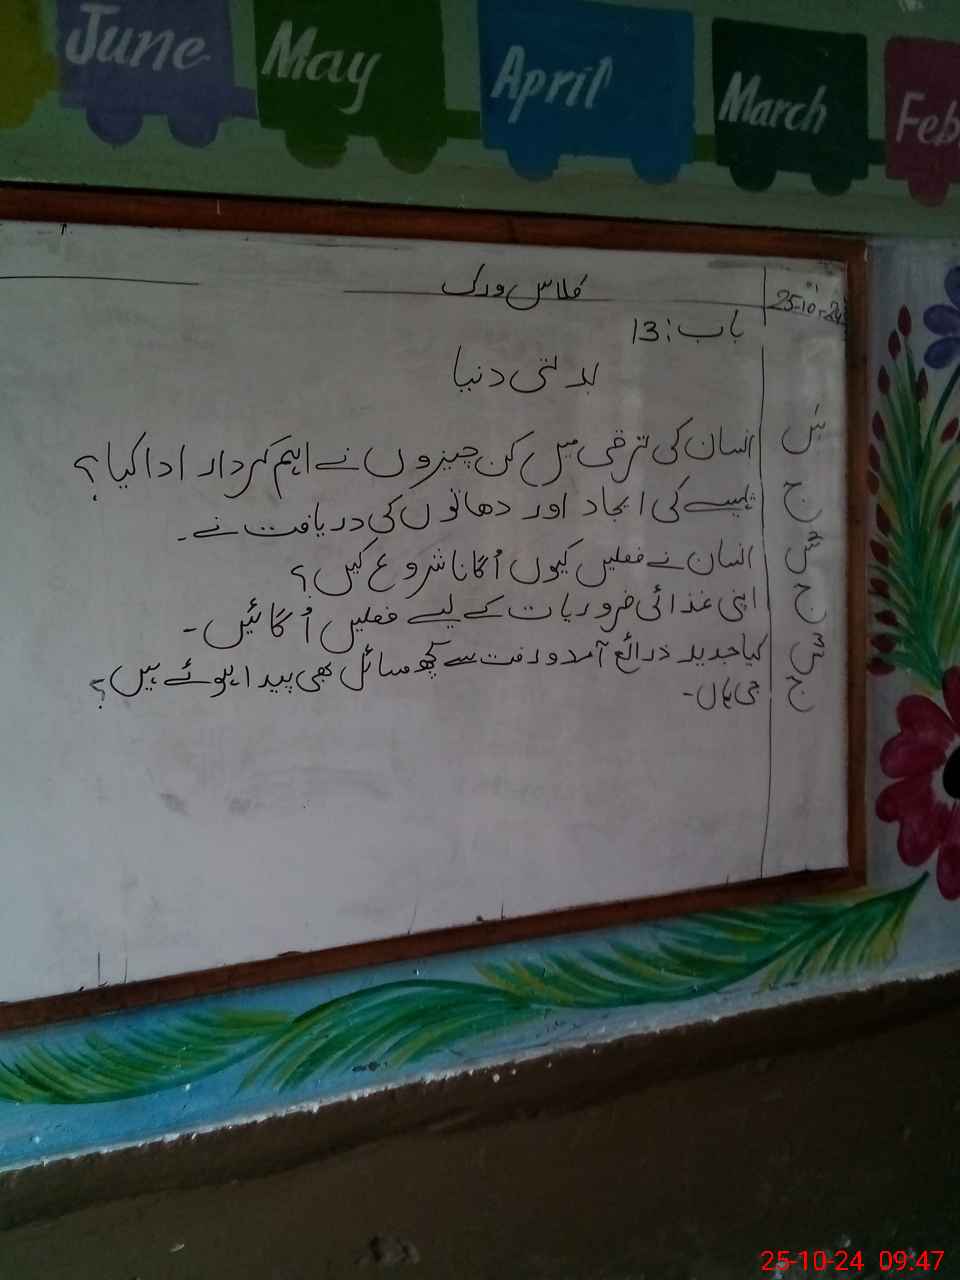 June May April March Feb
کلاس ورک
25-10-24
باب: 13
بدلتی دنیا
س انسان کی ترقی میں کن چیزوں نے اہم کردار ادا کیا؟
ج پہیے کی ایجاد اور دھاتوں کی دریافت نے۔
س انسان نے فصلیں کیوں اُگانا شروع کیں؟
ج اپنی غذائی ضروریات کے لیے فصلیں اُگائیں۔
س کیا جدید ذرائع آمدورفت سے کچھ مسائل بھی پیدا ہوئے ہیں؟
ج جی ہاں۔
25-10-24 09:47